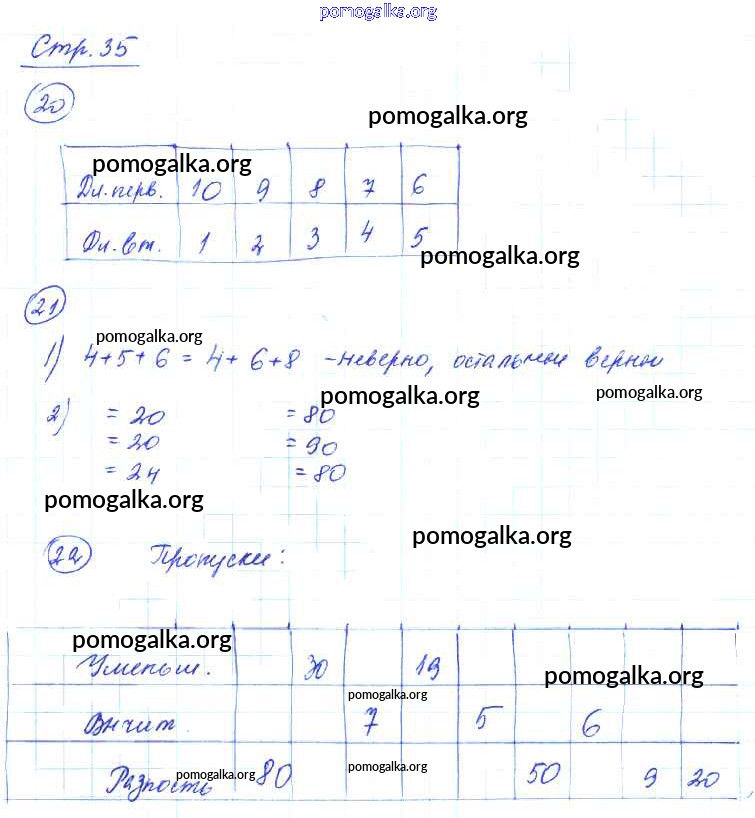 pomogalka.org
Стр. 35
20
pomogalka.org
pomogalka.org
Дл. перв. 10 9 8 7 6
Дл. вт. 1 2 3 4 5
pomogalka.org
21
pomogalka.org
1) 4+5+6 = 4+6+8 - неверно, остальные верны
pomogalka.org pomogalka.org
2) = 20 = 80
= 20 = 90
= 24 = 80
pomogalka.org
pomogalka.org
22 Пропуски:
pomogalka.org
Уменьш. 30 19
pomogalka.org
pomogalka.org
Вычит. 7 5 6
pomogalka.org pomogalka.org
Разность 80 50 9 20